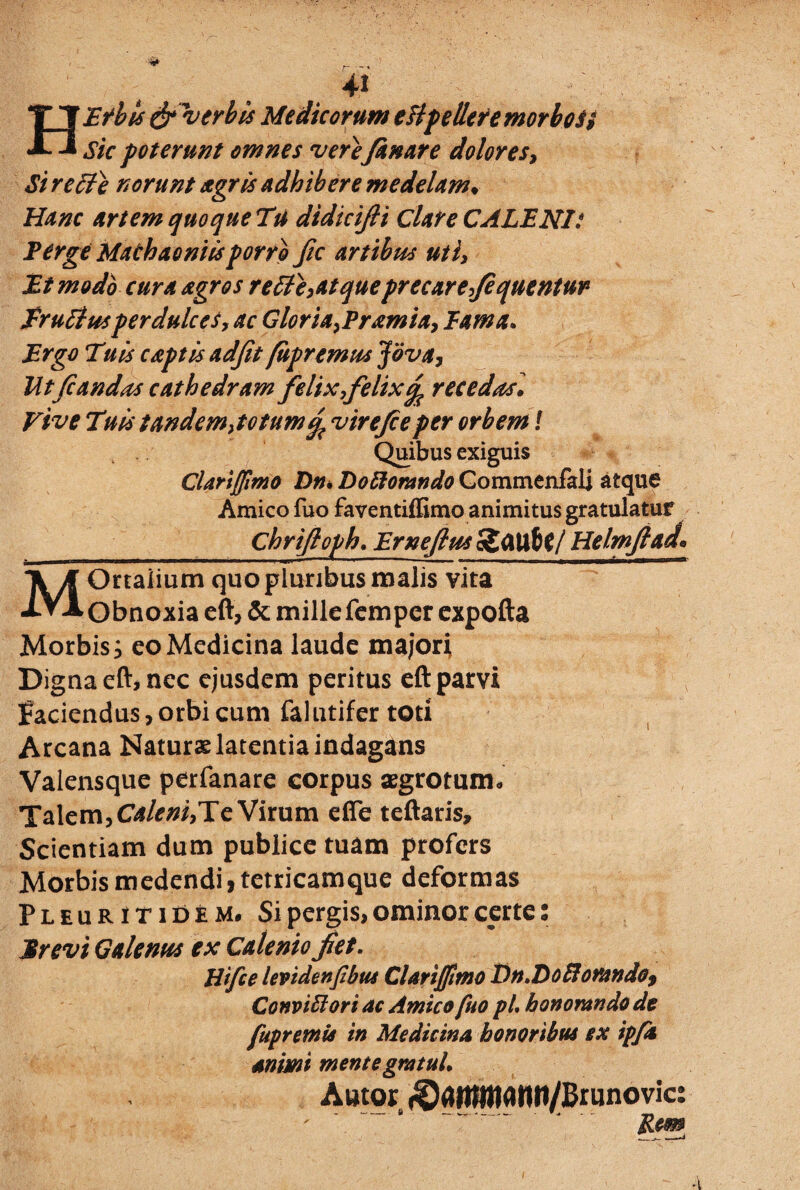 41
HErbis & verbis Medicorum est pellere morbos;
Sic poterunt omnes verè sanare dolores,
Si rectè norunt ægris adhibere medelam.
Hanc artem quoque Tu didicisti Clare CALENI:
Perge Machaoniis porrò sic artibus uti,
Et modò cura ægros rectè, atque precare, sequentur
Fructus perdulces, ac Gloria, Præmia, Fama.
Ergo Tuis cæptis adsit supremus Jova,
Ut scandas cathedram felix, felixq; recedas.
Vive Tuis tandem, totumq; viresce per orbem!
Quibus exiguis
Clarissimo Dn. Doctorando Commensali atque
Amico suo faventissimo animitus gratulatur
Christoph. Ernestus Taube/ Helmstad.
MOrtalium quo pluribus malis vita
Obnoxia est, & mille semper exposta
Morbis; eo Medicina laude majori
Digna est, nec ejusdem peritus est parvi
Faciendus, orbi cum salutifer toti
Arcana Naturæ latentia indagans
Valensque persanare corpus ægrotum.
Talem, Caleni, Te Virum esse testaris,
Scientiam dum publice tuam profers
Morbis medendi, tetricamque deformas
PLEURITIDEM. Si pergis, ominor certe:
Brevi Galenus ex Calenio fiet.
Hisce levidensibus Clarissimo Dn. Doctorando,
Convictori ac Amico suo pl. honorando de
supremis in Medicina honoribus ex ipsa
animi mente gratul.
Autor Dammann/Brunovic:
Rem